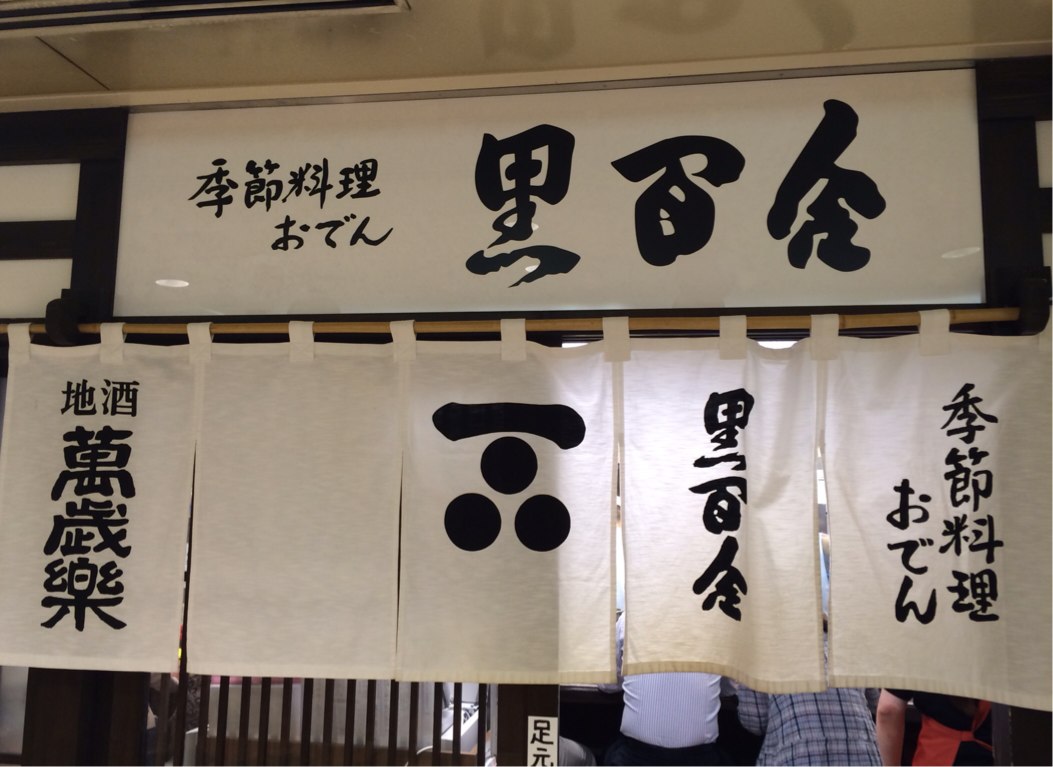 季節料理
おでん
黒百合
地酒
萬歳樂
黒百合
季節料理
おでん
足元